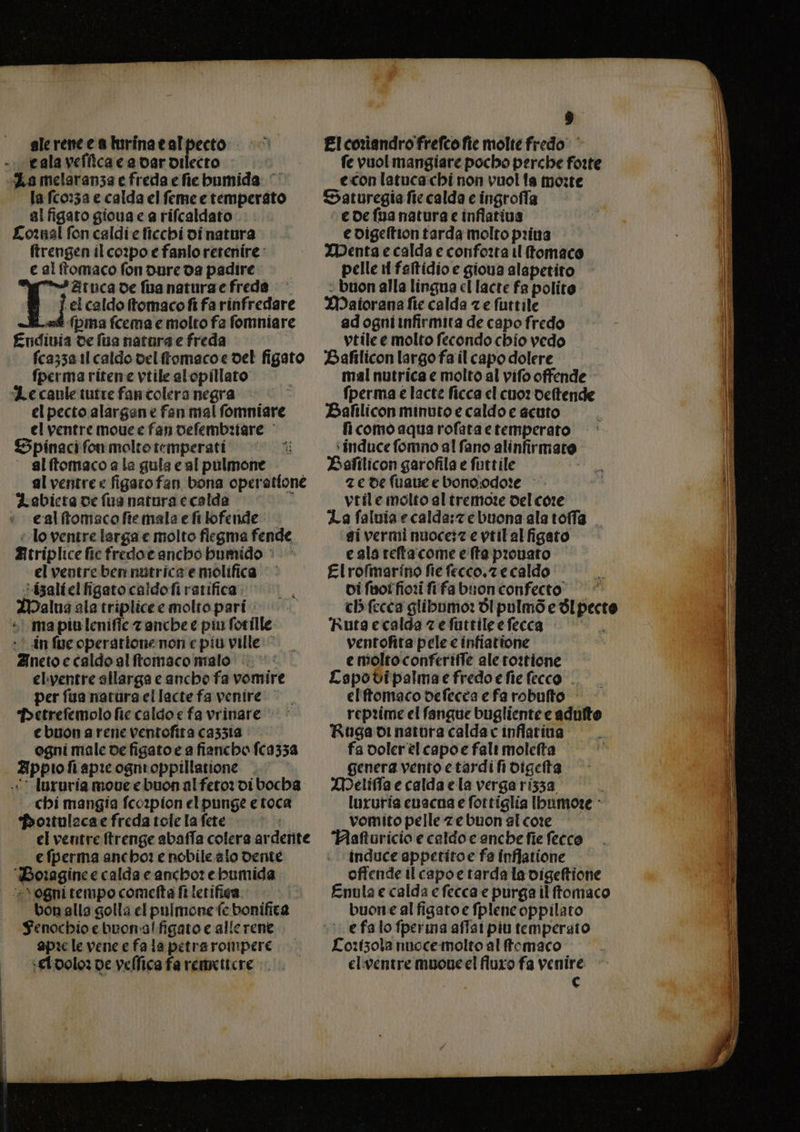 ale rene e a lurina e al pecto
e ala veſſica e a dar dilecto
La melaranza e freda e ſie humida
la ſcorza e calda el ſeme e temperato
al figato gioua e a riſcaldato
Cornal ſon caldi e ſicchi di natura
ſtrengen il corpo e fanlo retenire
e al ſtomaco ſon dure da padire
Latuca de ſua natura e freda
el caldo ſtomaco ſi fa rinfredare
ſpma ſcema e molto fa ſomniare
Endiuia de ſua natura e freda
ſcazza il caldo del ſtomaco e del figato
ſperma riten e vtile al opillato
Le caule tutte fan colera negra
el pecto alargan e fan mal ſomniare
el ventre moue e fan deſembriare
Spinaci ſon molto temperati
al ſtomaco a la gula e al pulmone
al ventre e figato fan bona operatione
Labieta de ſua natura e calda
e al ſtomaco ſie mala e ſi lofende
lo ventre larga e molto flegma fende
Atriplice ſie fredo e ancho humido
el ventre ben nutrica e molifica
izali el figato caldo ſi ratifica
Malua ala triplice e molto pari
ma piu leniſſe ⁊ anche e piu ſotille
in ſue operatione non e piu ville
Aneto e caldo al ſtomaco malo
el ventre allarga e ancho fa vomire
per ſua natura el lacte fa venire
Petreſemolo ſie caldo e fa vrinare
e buon a rene ventoſita cazzia
ogni male de figato e a fiancho ſcazza
Appio ſi apre ogni oppillatione
luxuria moue e buon al fetor di bocha
chi mangia ſcorpion el punge e toca
Portulaca e freda tole la ſete
el ventre ſtrenge abaſſa colera ardente
e ſperma anchor e nobile alo dente
Boragine e calda e anchor e humida
ogni tempo comeſta ſi letifica
bon alla golla el pulmone ſe bonifica
Fenochio e buon al figato e alle rene
apre le vene e fa la petra rompere
el dolor de veſſica fa remettere
9
El coriandro freſco ſie molte fredo
ſe vuol mangiare pocho perche forte
e con latuca chi non vuol la morte
Saturegia ſie calda e ingroſſa
e de ſua natura e inflatiua
e digeſtion tarda molto priua
Menta e calda e conforta il ſtomaco
pelle il faſtidio e gioua alapetito
buon alla lingua el lacte fa polito
Maiorana ſie calda ⁊ e ſuttile
ad ogni infirmita de capo fredo
vtile e molto ſecondo chio vedo
Baſilicon largo fa il capo dolere
mal nutrica e molto al viſo offende
ſperma e lacte ſicca el cuor deſtende
Baſilicon minuto e caldo e acuto
ſi como aqua roſata e temperato
induce ſomno al ſano alinfirmato
Baſilicon garofila e ſuttile
⁊ e de ſuaue e bono odore
vtil e molto al tremore del core
La ſaluia e calda:⁊ e buona ala toſſa
ai vermi nuoce:⁊ e vtil al figato
e ala teſta come e ſta prouato
El roſmarino ſie ſecco.⁊ e caldo
di ſuoi fiori ſi fa buon confecto
ch ſecca glihumor dl pulmō e dl pecto
Ruta e calda ⁊ e ſuttile e ſecca
ventoſita pele e infiatione
e molto conferiſſe ale tortione
Capo di palma e fredo e ſie ſecco
el ſtomaco deſecca e fa robuſto
reprime el ſangue bugliente e aduſto
Ruga di natura calda e inflatiua
fa doler el capo e fali moleſta
genera vento e tardi ſi digeſta
Meliſſa e calda e la verga rizza
luxuria euacua e ſottiglia lhumore
vomito pelle ⁊ e buon al core
Naſturicio e caldo e anche ſie ſecco
induce appetito e fa inflatione
offende il capo e tarda la digeſtione
Enula e calda e ſecca e purga il ſtomaco
buon e al figato e ſplene oppilato
e fa lo ſperma aſſai piu temperato
Corizola nuoce molto al ſtomaco
el ventre muoue el fluxo fa venire
c